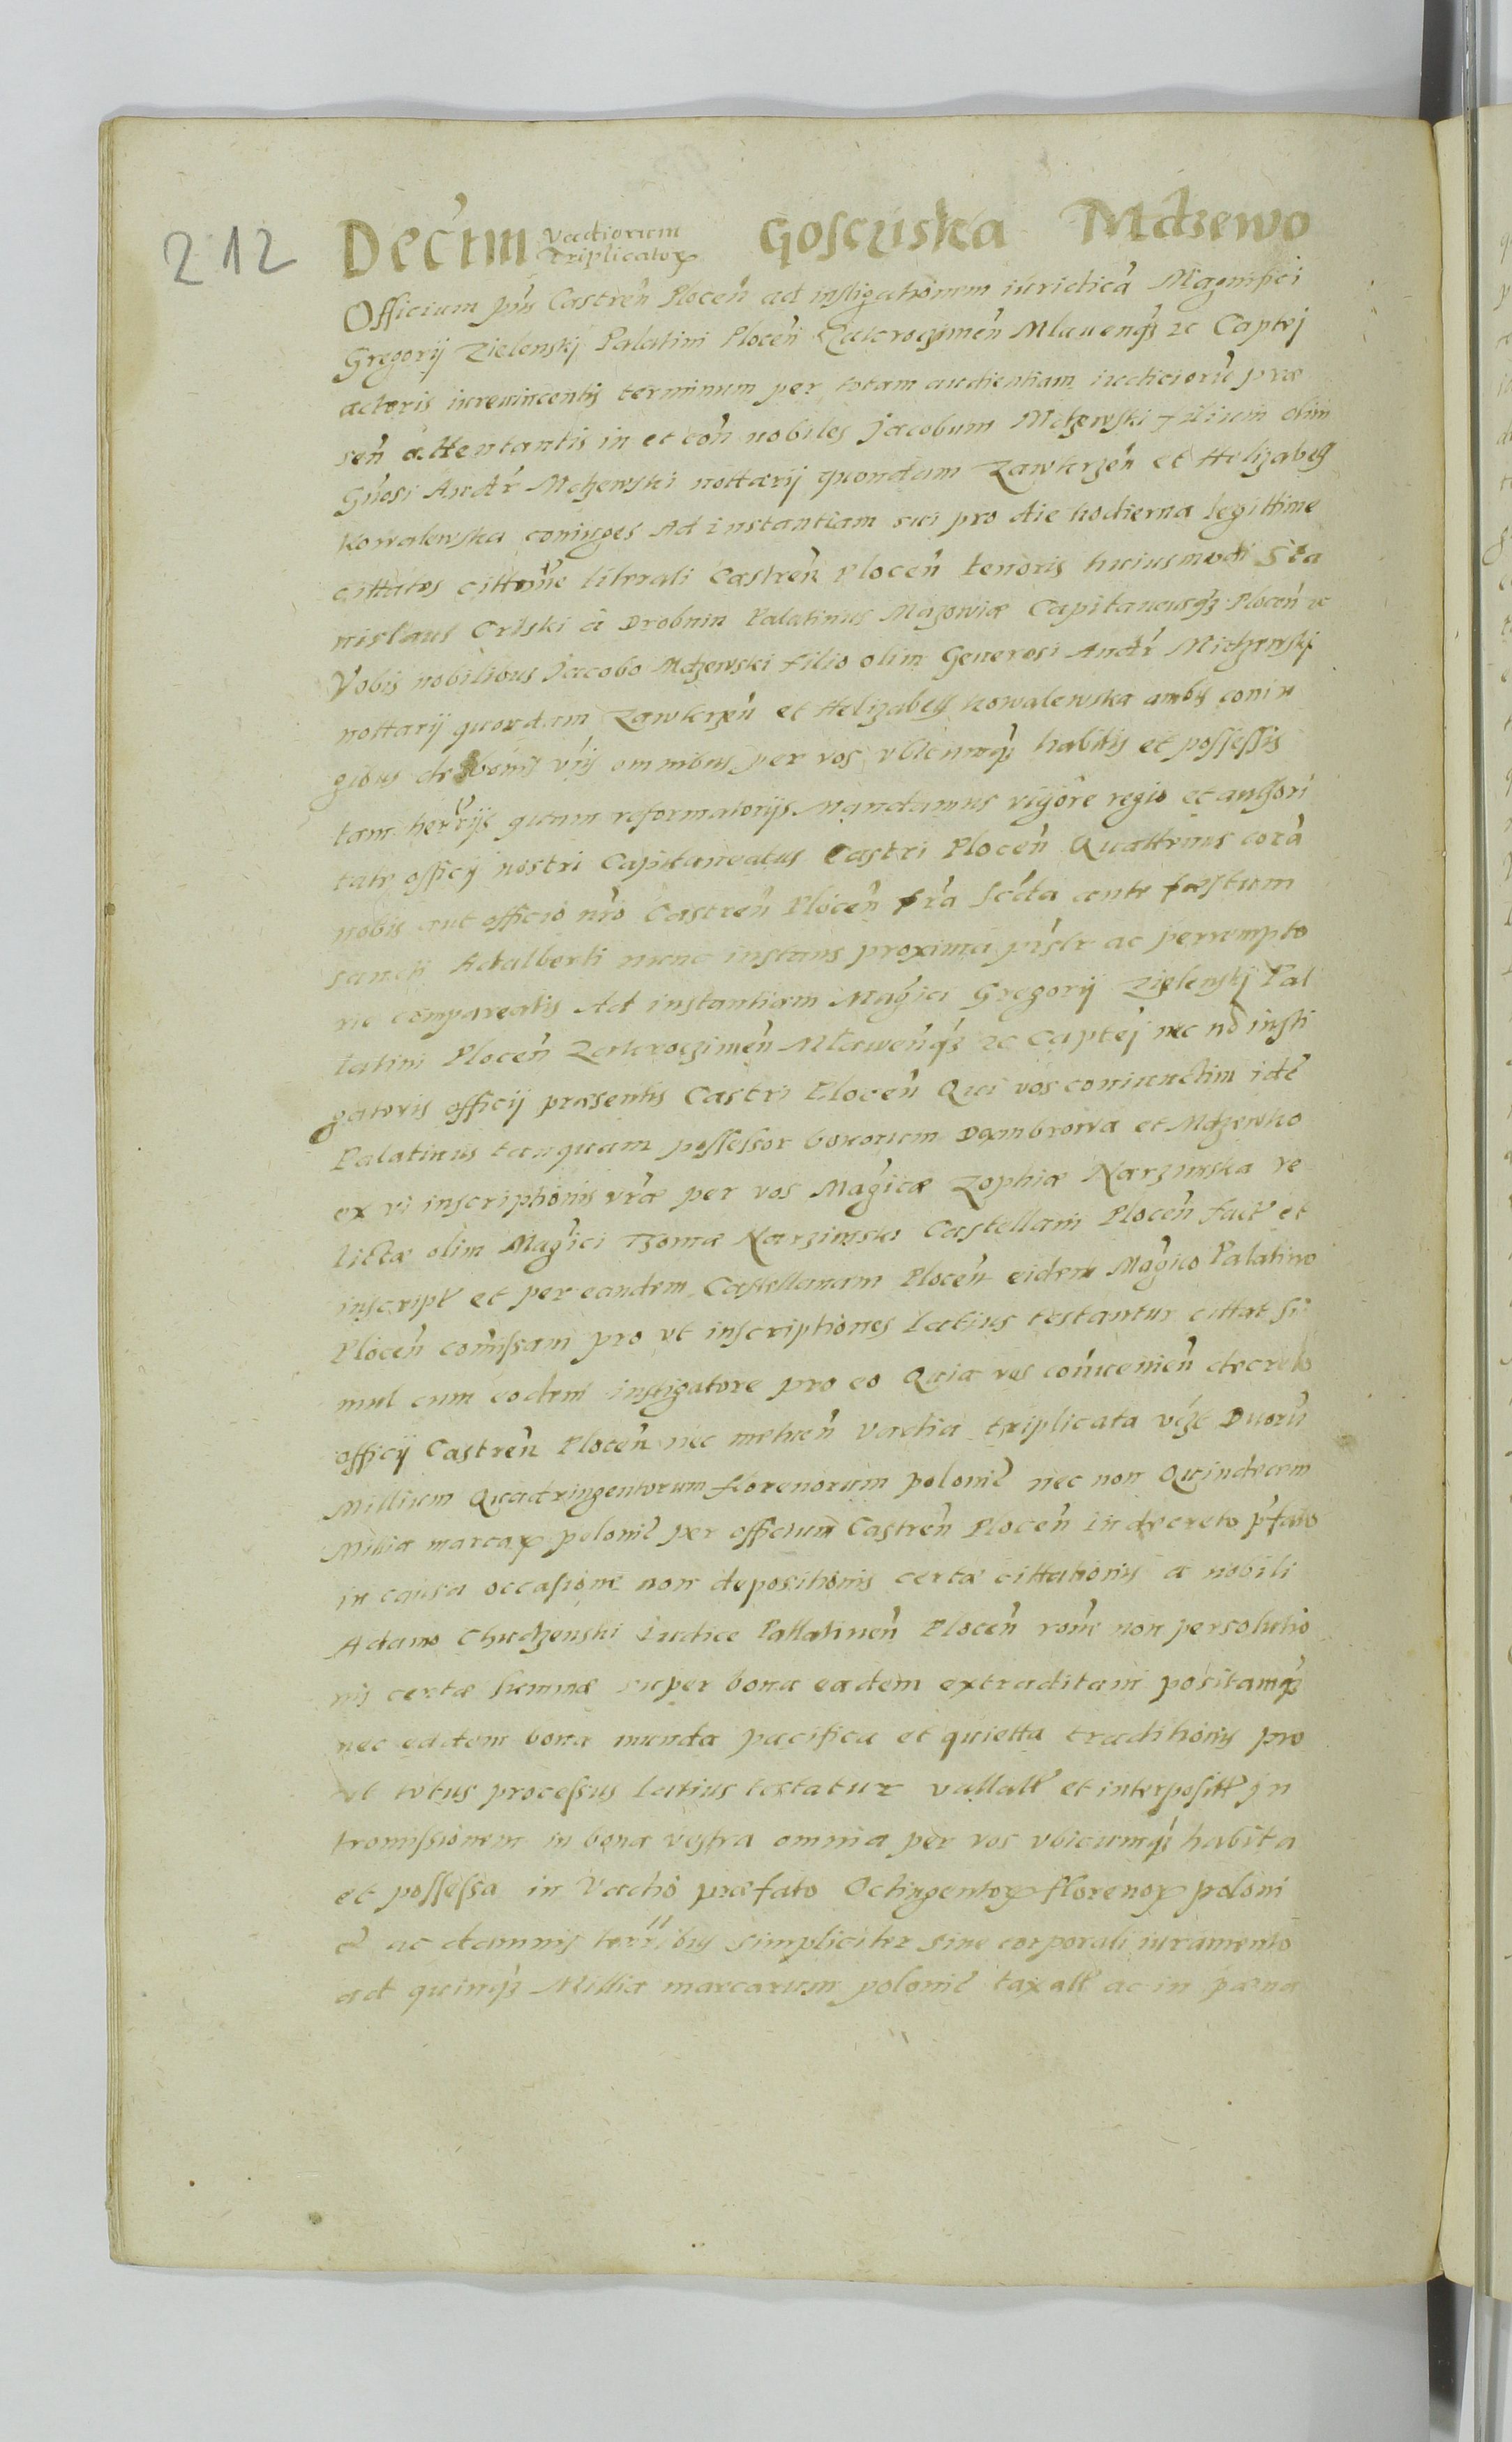 212
Decrm Vadiorum Triplicatoꝝ Goscziska Mdzewo
Officium pñs Castreñ Ploceñ ad instigationem iuridicã Magnifici
Gregorij Zielenskj Palatini Ploceñ Zakroczimeñ Mlauenqꝫ ꝛc Captej
actoris iureuincentis terminum per totam audientiam iudiciorũ præ
señ attentantis in et coñ nobiles Jacobum Mdzewski Filium olim
Gñosi Andr Mdzewski nottarij quondam Zawkrzeñ et Helizabeg
Kowalewska coniuges Ad instantiam sui pro die hodierna legittime
cittatos cittõne literali Castreñ Ploceñ tenoris huiusmodi Sta
nislaus Criski a Drobnin Palatinus Mazowiæ Capitaneusqꝫ Ploceñ ꝛc
Vobis nobilibus Jacobo Mdzewski Filio olim Generosi Andr Midzewskj
nottarij quondam Zawkrzeñ et Helizabeg Kowalewska ambs coniu
gibus de bonis vris omnibus per vos vbicumqꝫ habitis et possessis
tam herrijs quam reformatorijs Mandamus vigore regio et authori
tate officij nostri Capitaneatus Castri Ploceñ Quattenus corã
nobis aut officio nro Castreñ Ploceñ fra Scda ante fæstum
sancti Adalberti nunc instans proxima pislr ac perrempto
rie compareatis Ad instantiam Magici Gregorij Zielenskj Pal
latini Ploceñ Zakroczimeñ Mławeñqꝫ ꝛc Captej nec nõ insti
gatoris officij præsentis Castri Ploceñ Qui vos coniunctim idẽ
Palatinus tanquam possessor bonorum Dombrowa et Mdzewko
ex vi inscriptionis vræ per vos Magicæ Zophiæ Narzimska re
lictæ olim Magici Thomæ Narzimski Castellani Ploceñ fact et
inscript et per eandem Castellanam Ploceñ eidem Magico Palatino
Ploceñ comissam pro vt inscriptiones latius testantur cittat si
mul cum eodem instigatore pro eo Quia vos conuenieñ decreto
officij Castreñ Ploceñ nec metueñ vadia triplicata vꝫt Duorũ
Millium Quadringentorum florenorum polonil nec non Quindecem
Millia marcaꝝ polonil per officium Castreñ Ploceñ in decreto pfato
in causa occasione non depositionis certæ cittationis a nobili
Adamo Chudzenski Iudice Pallatineñ Ploceñ rone non persolutio
nis certæ summæ super bona eadem extraditam positamqꝫ
nec eadem bona munda pacifica et quietta traditionis pro
vt totus processus latius testatur vallatt et interpositt in
tromissionem in bona vestra omnia per vos vbicumqꝫ habita
et possessa in Vadio præfato Octingentoꝝ florenoꝝ poloni
ac damnis terrribus simpliciter sine corporali iuramento
ad quinqꝫ Millia marcarum polonil taxatt ac in pæna